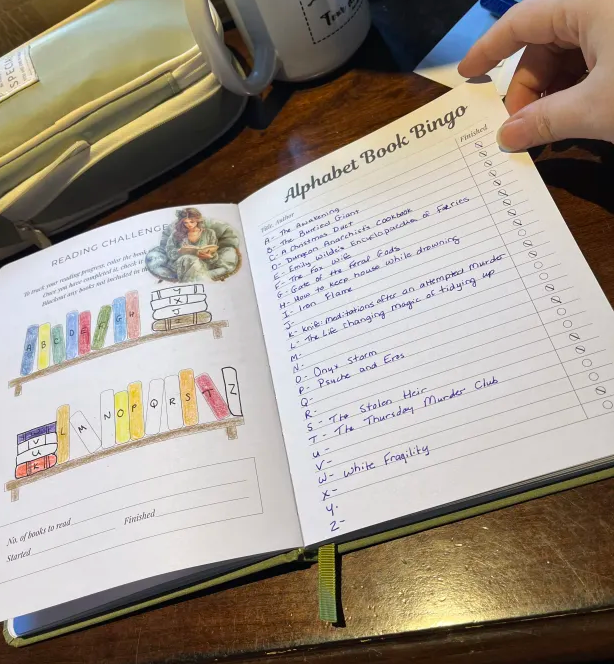 SPECI
Trav
READING CHALLENGE
To track your reading progress, color the book
Once you have completed it, check it
Blackout any books not included in th
A B C D E F G H
J
I
K
L M N O P Q R S T Z
V
U
K
No. of books to read
Started Finished
Alphabet Book Bingo
Title, Author Finished
A- The Awakening
B- The Burried Giant
C- A Christmas Duet
D- Dungeon Anarchist's cookbook
E- Emily Wilde's Encyclopaedia of faeries
F- The Fox Wife
G- Gate of the Feral Gods
H- How to keep house while drowning
I- Iron Flame
J-
K- Knife: Meditations after an attempted Murder
L- The Life changing magic of tidying up
M-
N-
O- Onyx Storm
P- Psyche and Eros
Q-
R-
S- The Stolen Heir
T- The Thursday Murder Club
U-
V-
W- White Fragility
X-
Y-
Z-